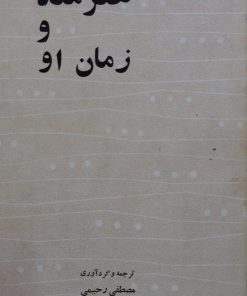 هنرمند
و
زمان او
ترجمه و گردآوری
مصطفی رحیمی